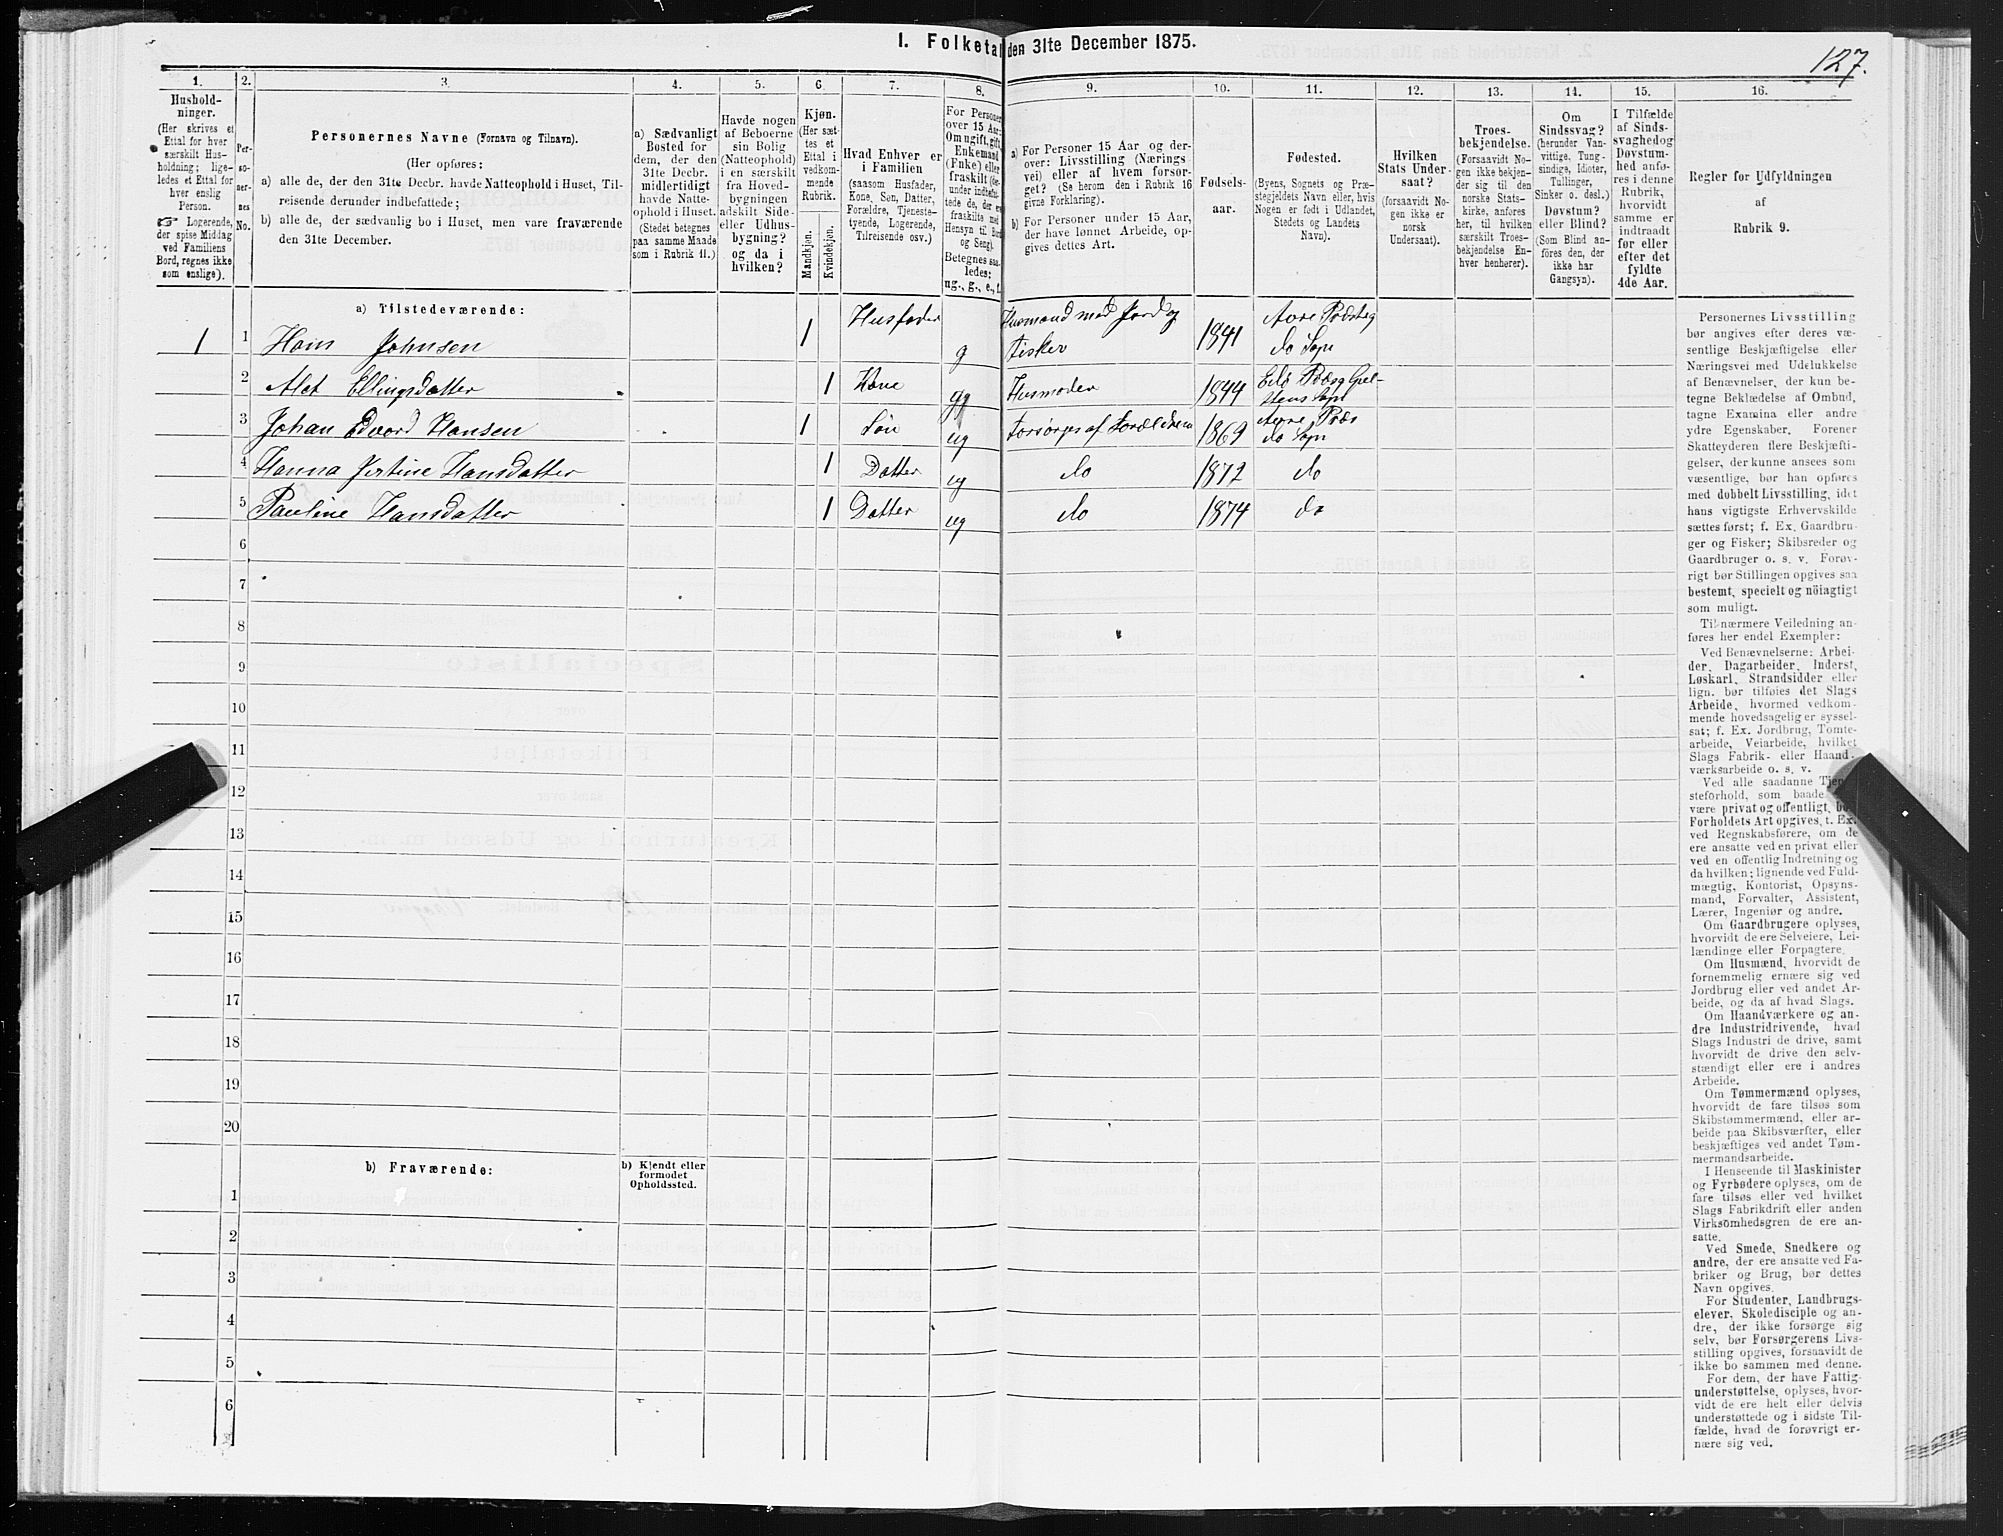 I. Folketal den 31te December 1875.
127.
1.
2.
3.
4.
5.
6.
7.
8.
9.
10.
11.
12.
13.
14.
15.
16.
Hushold-
ninger.
(Her skrives et
Ettal for hver
særskilt Hus-
holdning; lige-
ledes et Ettal for
hver enslig
Person.
☞ Logerende,
der spise Middag
ved Familiens
Bord, regnes ikke
som enslige).
Per-
so-
ner-
nes
No.
Personernes Navne (Fornavn og Tilnavn).
(Her opføres:
a) alle de, der den 31te Decbr. havde Natteophold i Huset, Til-
reisende derunder indbefattede;
b) alle de, der sædvanlig bo i Huset, men vare fraværende
den 31te December.
a) Sædvanligt
Bosted for
dem, der den
31te Decbr.
midlertidigt
havde Natte-
ophold i Huset.
(Stedet betegnes
paa samme Maade
som i Rubrik 11.)
Havde nogen
af Beboerne
sin Bolig
(Natteophold)
i en særskilt
fra Hoved-
bygningen
adskilt Side-
eller Udhus-
bygning?
og da i
hvilken?
Kjøn.
(Her sæt-
tes et
Ettal i
vedkom-
mende
Rubrik.
Mandkjøn.
Kvindekjøn.
Hvad Enhver er
i Familien
(saasom Husfader,
Kone, Søn, Datter,
Forældre, Tjeneste-
tyende, Logerende,
Tilreisende osv.)
For Personer
over 15 Aar:
Om ugift, gift,
Enkemand
(Enke) eller
fraskilt
Betegnes saa-
ledes:
ug., g., e., f.
a) For Personer 15 Aar og der-
over: Livsstilling (Nærings
vei) eller af hvem forsør-
get? (Se herom den i Rubrik 16
givne Forklaring).
b) For Personer under 15 Aar,
der have lønnet Arbeide, op-
gives dettes Art.
Fødsels-
aar.
Fødested.
(Byens, Sognets og Præ-
stegjeldets Navn eller, hvis
Nogen er født i Udlandet,
Stedets og Landets
Navn).
Hvilken
Stats Under-
saat?
(forsaavidt No-
gen ikke er
norsk
Undersaat).
Troes-
bekjendelse.
(Forsaavidt No-
gen ikke bekjen-
der sig til den
norske Stats-
kirke, anføres
her, til hvilken
særskilt Troes-
bekjendelse En-
hver henhører).
Om
Sindssvag?
(herunder Van-
vittige, Tung-
sindige, Idioter,
Tullinger,
Sinker o. desl.)
Døvstum?
eller Blind?
(Som Blind an-
føres den, der
ikke har
Gangsyn).
I Tilfælde
af Sinds-
svaghed og
Døvstum-
hed anfø-
res i denne
Rubrik,
hvorvidt
samme er
indtraadt
før eller
efter det
fyldte
4de Aar.
Regler for Udfyldningen
af
Rubrik 9.
a) Tilstedeværende:
1 1 Hans Johnsen 1 Husfader g Husmand med Jord og
Fisker 1841 Aure Præsteg
do Sogn
2 Alet Ellingsdatter 1 Kone g Husmoder 1844
3 Johan Edvard Hansen 1 Søn ug Forsørges af Forældrene 1869 Aure Præs
do Sogn
4 Hanna Jertine Hansdatter 1 Datter ug do 1872 do
5 Pauline Hansdatter 1 Datter ug do 1874 do
6
7
8
9
10
11
12
13
14
15
16
17
18
19
20
b) Fraværende:
b) Kjendt eller
formodet
Opholdssted.
1
2
3
4
5
6
Personernes Livsstilling
bør angives efter deres væ-
sentlige Beskjæftigelse eller
Næringsvei med Udelukkelse
af Benævnelser, der kun be-
tegne Beklædelse af Ombud,
tagne Examina eller andre
ydre Egenskaber. Forener
Skatteyderen flere Beskjæfti-
gelser, der kunne ansees som
væsentlige, bør han opføres
med dobbelt Livsstilling, idet
hans vigtigste Erhvervskilde
sættes først; f. Ex. Gaardbru-
ger og Fisker; Skibsreder og
Gaardbruger o. s. v. Forøv-
rigt bør Stillingen opgives saa
bestemt, specielt og nöiagtigt
som muligt.
Til nærmere Veiledning an-
føres her endel Exempler:
Ved Benævnelserne: Arbei-
der, Dagarbeider, Inderst,
Løskarl, Strandsidder eller
lign. bør tilføies det Slags
Arbeide, hvormed vedkom-
mende hovedsagelig er syssel-
sat; f. Ex. Jordbrug, Tomte-
arbeide, Veiarbeide, hvilket
Slags Fabrik- eller Haand-
værksarbeide o. s. v.
Ved alle saadanne Tjene-
steforhold, som baade kan
være privat og offentligt, bør
Forholdets Art opgives, t. Ex.
ved Regnskabsførere, om de
ere ansatte ved en privat eller
ved en offentlig Indretning og
da hvilken; lignende ved Fuld-
mægtig, Kontorist, Opsyns-
mand, Forvalter, Assistent,
Lærer, Ingeniør og andre.
Om Gaardbrugere oplyses,
hvorvidt de ere Selveiere, Lei-
lændinge eller Forpagtere.
Om Husmænd, hvorvidt de
fornemmelig ernære sig ved
Jordbrug eller ved andet Ar-
beide, og da af hvad Slags.
Om Haandværkere og an-
dre Industridrivende, hvad
Slags Industri de drive, samt
hvorvidt de drive den selv-
stændigt eller ere i andres
Arbeide.
Om Tømmermænd oplyses,
hvorvidt de fare tilsøs som
Skibstømmermænd, eller ar-
beide paa Skibsværfter, eller
beskjæftiges ved andet Tøm-
mermandsarbeide.
I Henseende til Maskinister
og Fyrbødere oplyses, om de
fare tilsøs eller ved hvilket
Slags Fabrikdrift eller anden
Virksomhedsgren de ere an-
satte.
Ved Smede, Snedkere og
andre, der ere ansatte ved Fa-
briker og Brug, bør dettes
Navn opgives.
For Studenter, Landbrugs-
elever, Skoledisciple og an-
dre, der ikke forsørge sig
selv, bør Forsørgerens Livs-
stilling opgives, forsaavidt de
ikke bo sammen med denne.
For dem, der have Fattig-
understøttelse, oplyses, hvor-
vidt de ere helt eller delvis
understøttede og i sidste Til-
fælde, hvad de forøvrigt er-
nære sig ved.